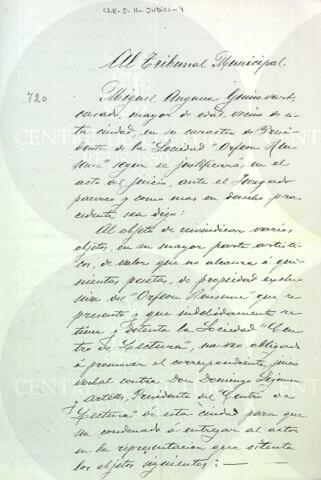 CLR-5-11-JUDICI-4
Al Tribunal Municipal.
720
Miguel Anguera
casado, mayor de edad, vecino de es-
ta ciudad, en su caracter de Presi-
dente de la "Sociedad "Orfeon Reu-
sense" segun se justificará en el
acto del juicio, ante el Juzgado
parezco y como mas en derecho pro-
cedente sea digo:
Al objeto de reivindicar varios
objetos, en su mayor parte artísti-
cos, de valor que no alcanza á qui-
nientas pesetas, de propiedad exclu-
siva del "Orfeon Reusense" que re-
presento y que indebidamente re-
tiene y detenta la Sociedad "Cen-
tro de Lectura", me veo obligado
á promover el correspondiente juicio
verbal contra Don Domingo
Artells, Presidente del "Centro de
Lectura" de esta ciudad para que
sea condenado á entregar al actor
en la representacion que ostenta
los objetos siguientes: —